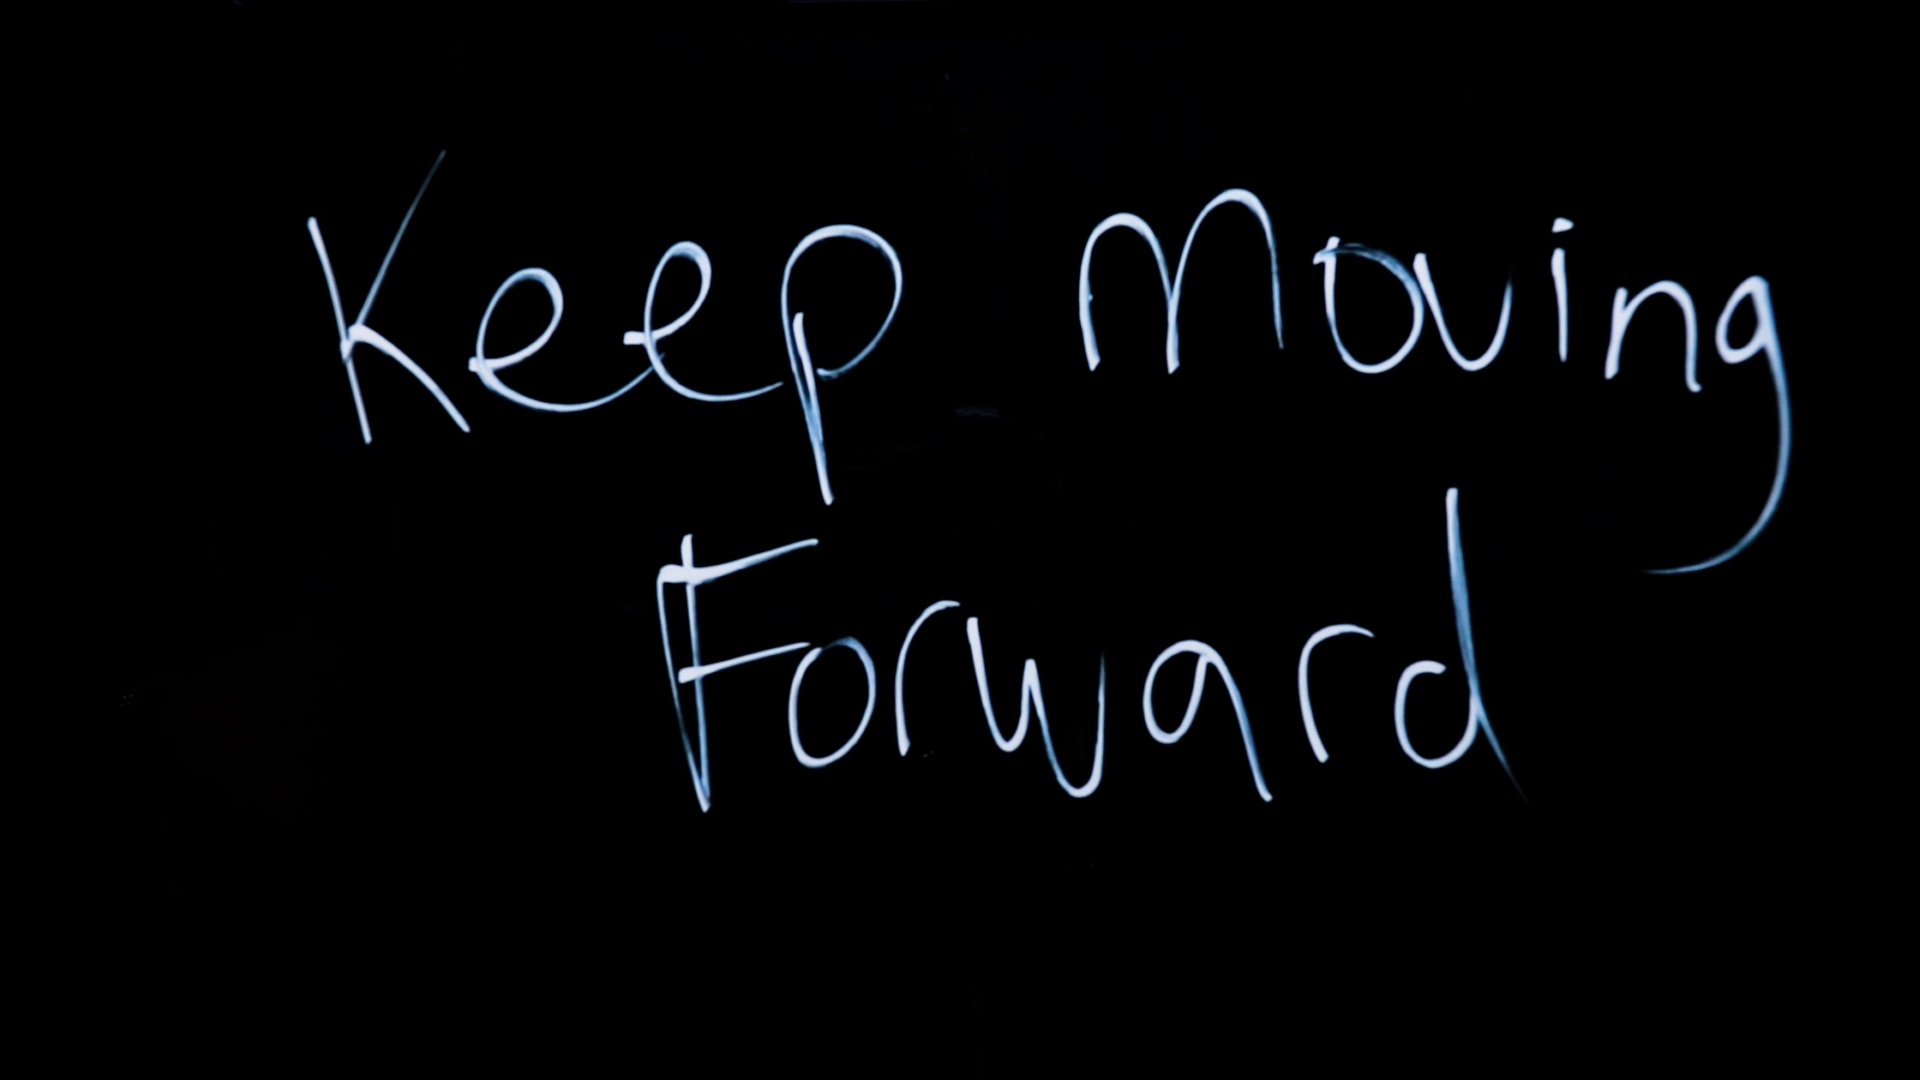 Keep moving
Forward